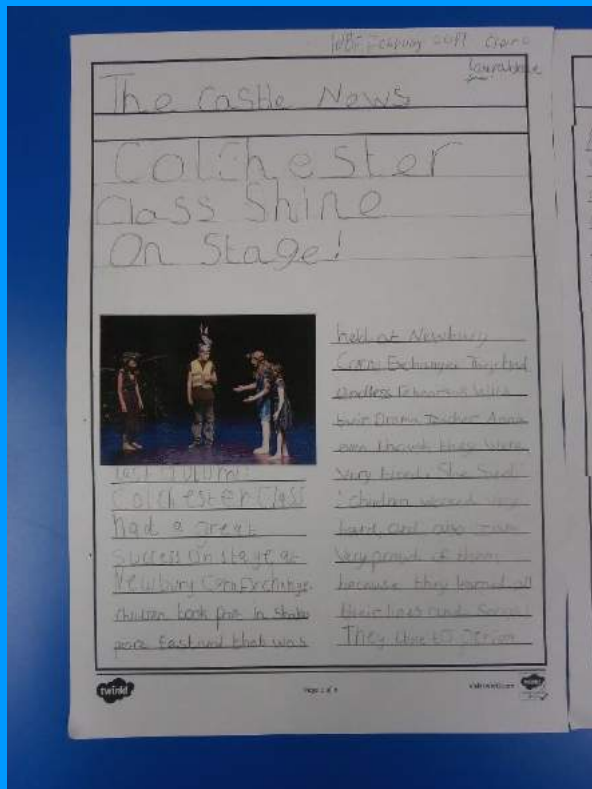 February
The Castle News
Colchester
Class Shine
On Stage!
last autumn
Colchester Class
had a great
success on stage at
Newbury Corn Exchange.
children took part in Shake
peare Festival that was
held at Newbury
Corn Exchange. They had
endless rehearsals with
their Drama Teacher Anna
even though they were
very tired. She said:
children worked very
hard, and also I am
very proud of them,
because they learned all
their lines and
They
twinkl
Page 1 of
visit twinkl.com
twinkl